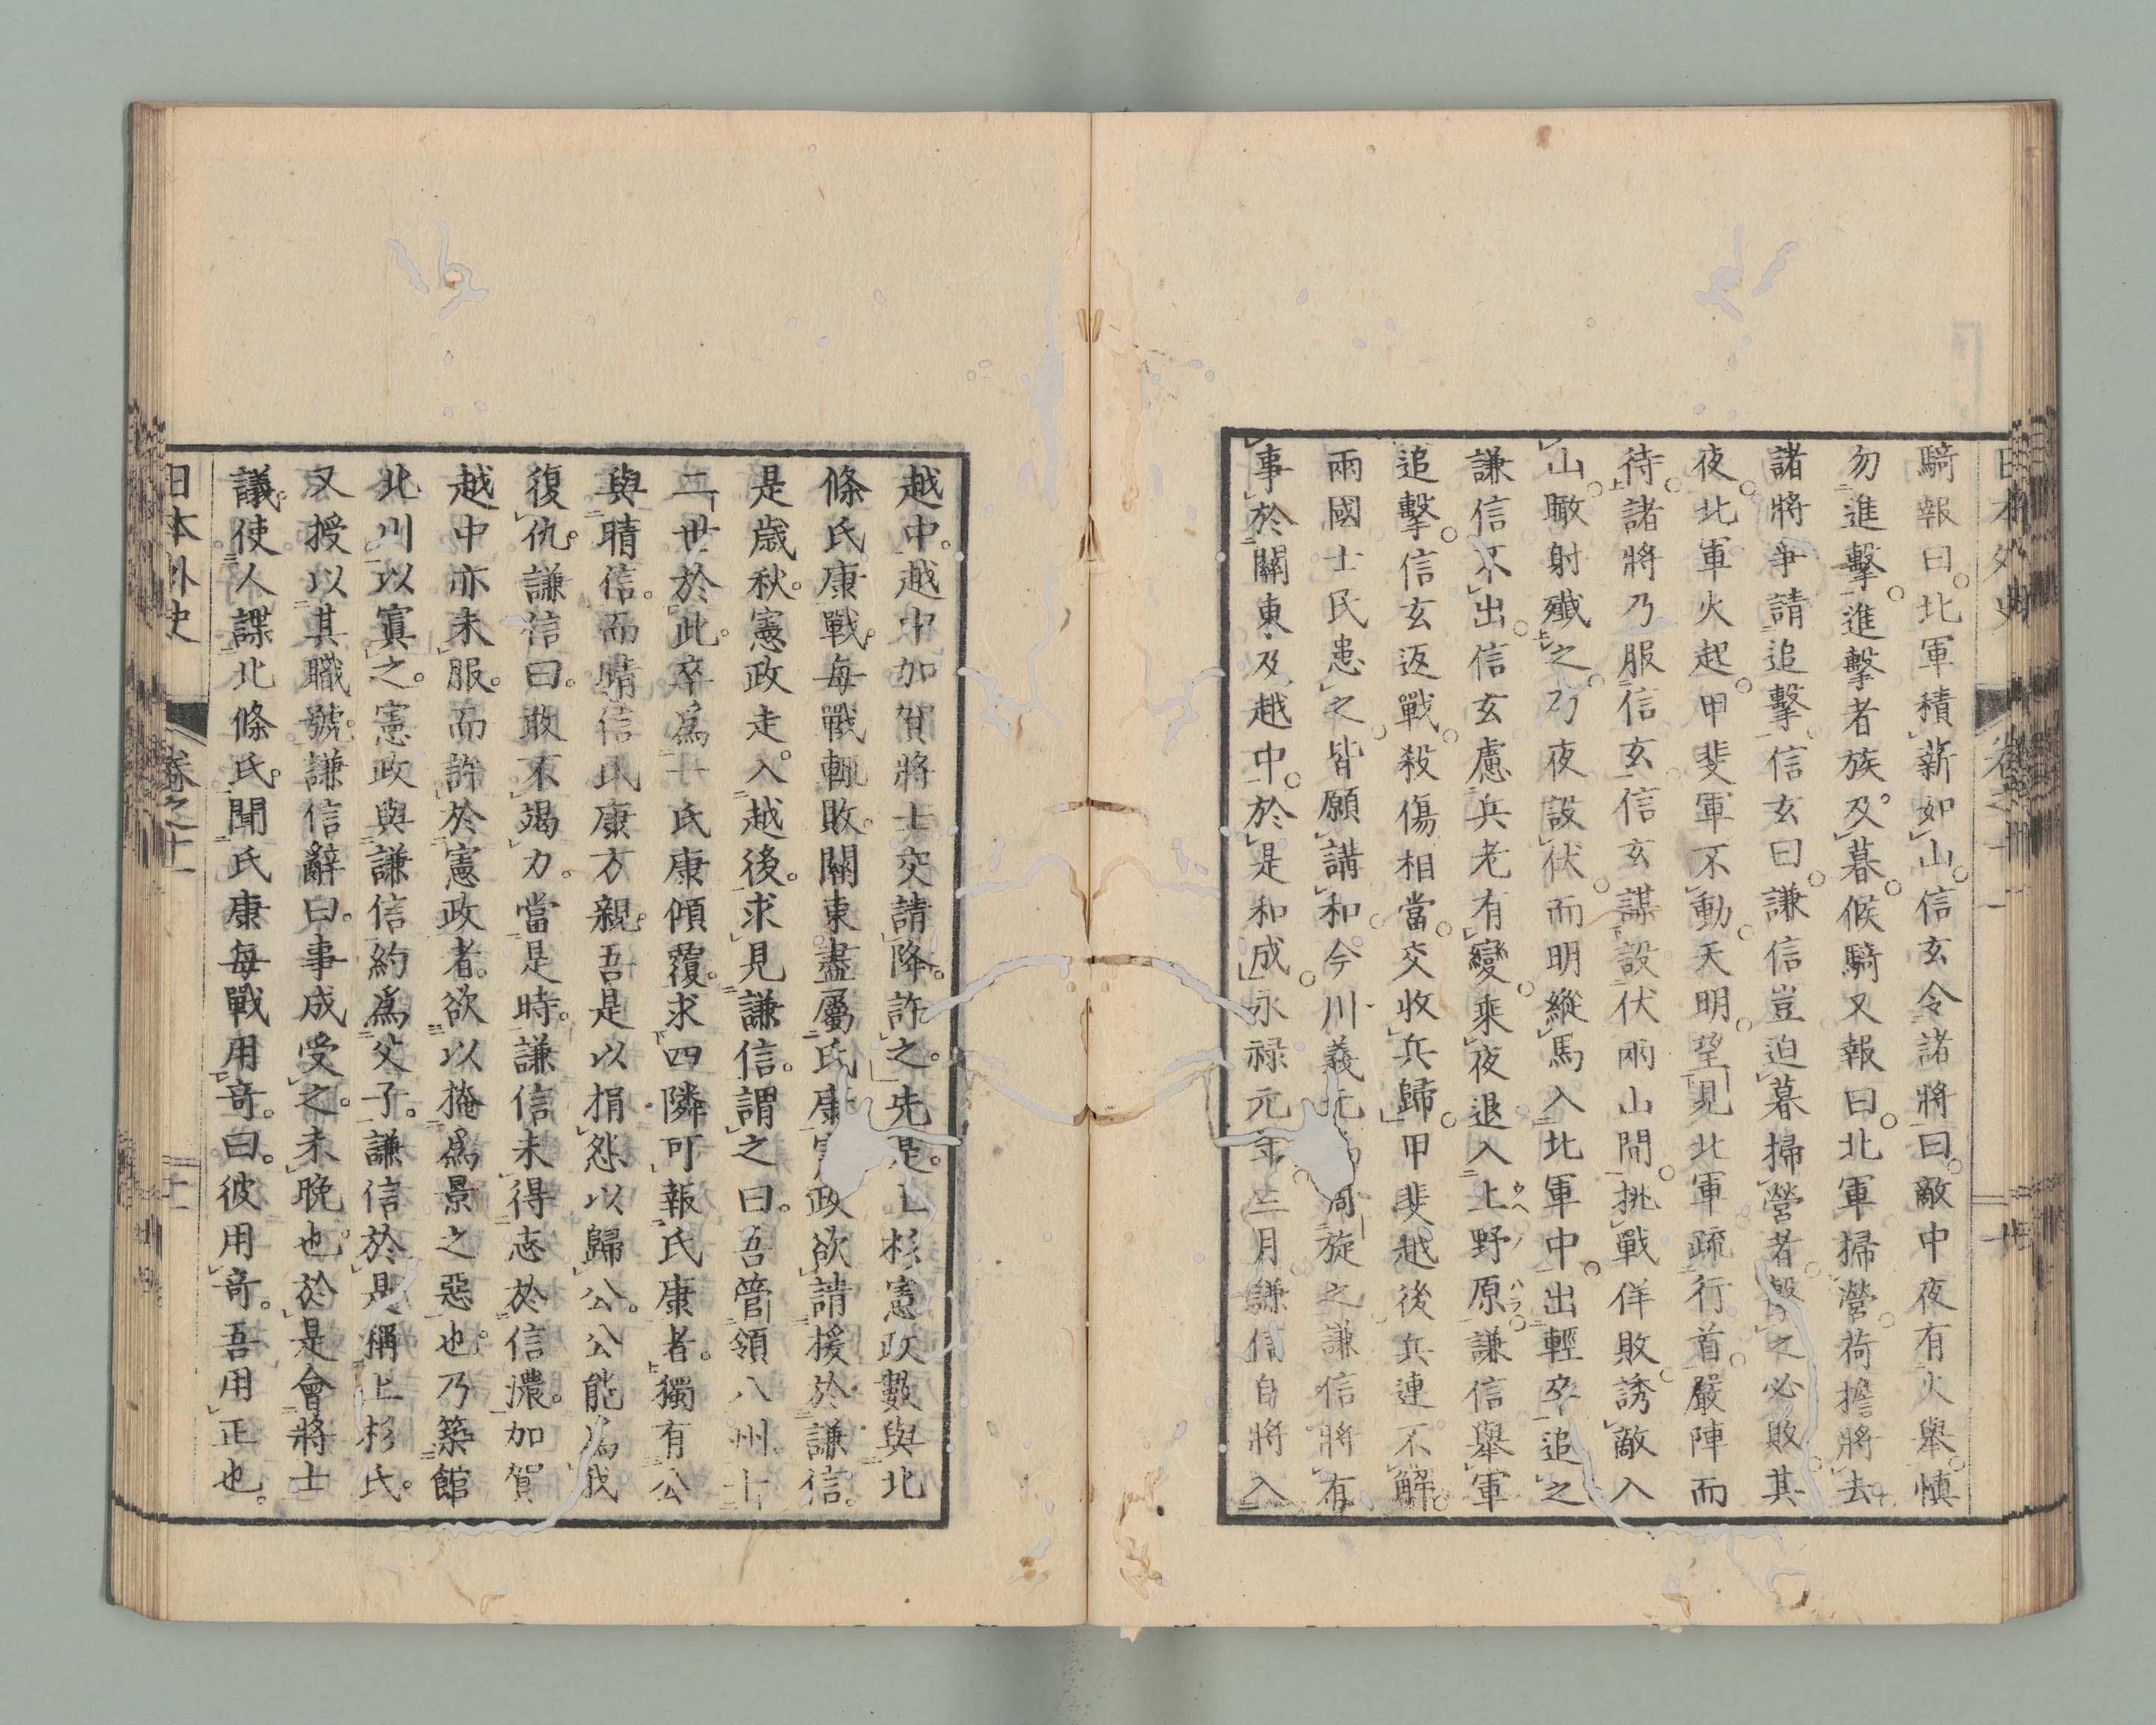 日本外史
卷之十一
騎報曰。北軍積薪如山。信玄令諸將曰。敵中夜有火舉。愼
勿進擊。進擊者族。及暮。候騎又報曰。北軍掃營荷擔將去。
諸將爭請追擊。信玄曰。謙信豈迫暮掃營者。之必敗。其
夜。北軍火起。甲斐軍不動。天明。望見北軍疏行首嚴陣而
待。諸將乃服。信玄信玄謀設伏兩山間。挑戰佯敗。誘敵入
山瞰射殲之。乃夜設伏。而明縱馬入北軍中。出輕卒追之
謙信不出。信玄慮兵老有變。乘夜退入上野原。謙信舉軍
追擊。信玄返戰。殺傷相當。交收兵歸。甲斐越後兵連不解。
兩國士民患之。皆願講和。今川義元周旋之。謙信將有
事於關東及越中。於是和成。永祿元年三月謙信自將入
越中。越中加賀將士交請降。許之。先是。上杉憲政數與北
條氏康戰。每戰輙敗。關東盡屬氏康。憲政欲請援於謙信。
是歲秋。憲政走入越後。求見謙信。謂之曰。吾管領八州。十
二世於此。卒爲氏康傾覆。求四隣可報氏康者。獨有公
與晴信。而晴信氏康方親。吾是以捐怨以歸公。公能爲我
復仇。謙信曰。敢不竭力。當是時。謙信未得志於信濃。加賀
越中亦未服。而許於憲政者。欲以掩爲景之惡也。乃築館
北川以寘之。憲政與謙信約爲父子。謙信於是稱上杉氏。
又授以其職號。謙信辭曰。事成受之。未晩也。於是會將士
議。使人諜北條氏。聞氏康每戰用奇。曰。彼用奇。吾用正也。
日本外史
卷之十一